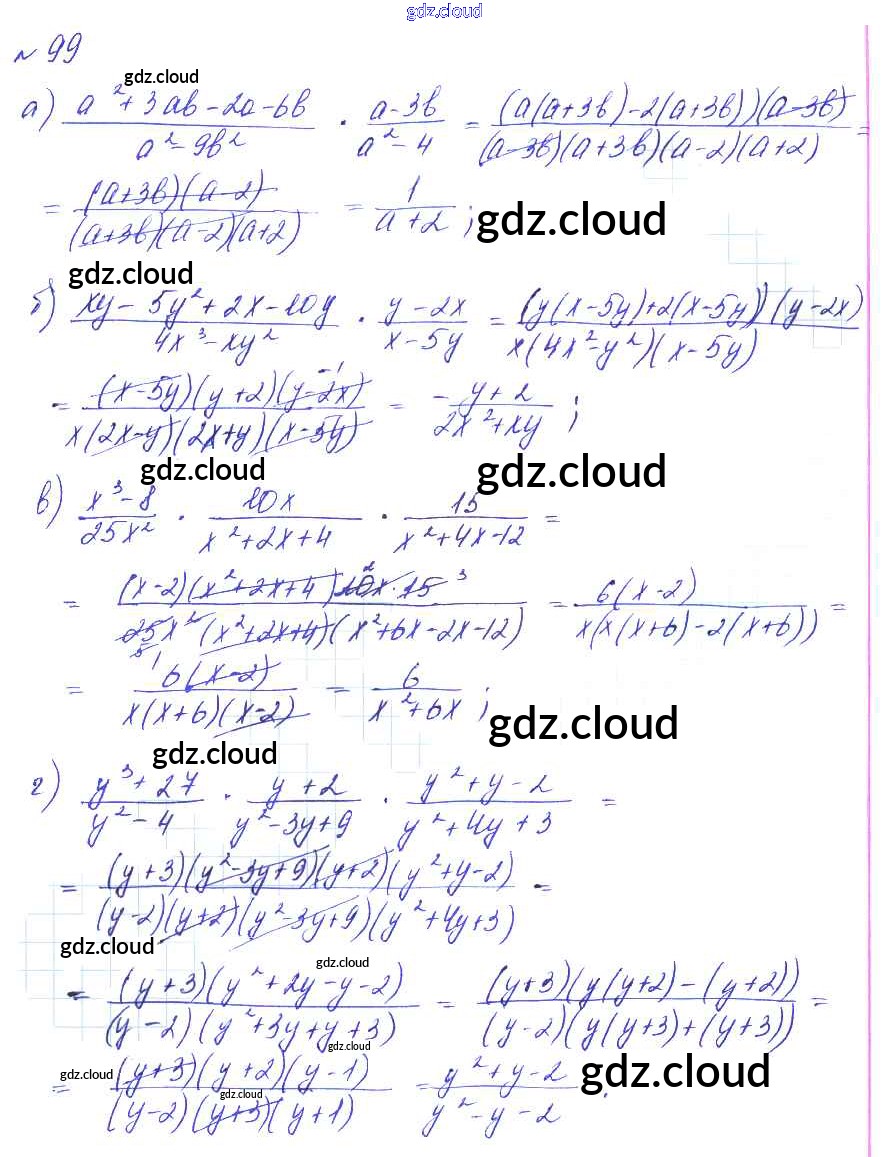 gdz.cloud
№ 99
gdz.cloud
а) (a² + 3ab - 2a - 6b)/(a² - 9b²) · (a - 3b)/(a² - 4) = ((a(a+3b) - 2(a+3b))(a-3b))/((a-3b)(a+3b)(a-2)(a+2)) =
= ((a+3b)(a-2))/((a+3b)(a-2)(a+2)) = 1/(a+2) ; gdz.cloud
gdz.cloud
б) (xy - 5y² + 2x - 10y)/(4x³ - xy²) · (y - 2x)/(x - 5y) = ((y(x-5y)+2(x-5y))(y-2x))/(x(4x²-y²)(x-5y))
= ((x-5y)(y+2)(y-2x) -1)/(x(2x-y)(2x+y)(x-5y)) = - (y+2)/(2x²+xy) ;
gdz.cloud gdz.cloud
в) (x³ - 8)/(25x²) · 10x/(x² + 2x + 4) · 15/(x² + 4x - 12) =
= ((x-2)(x²+2x+4) 10x 2 · 15 3)/(25x² 5 1 (x²+2x+4)(x²+6x-2x-12)) = 6(x-2)/(x(x(x+6)-2(x+6))) =
= 6(x-2)/(x(x+6)(x-2)) = 6/(x²+6x) ; gdz.cloud
gdz.cloud
г) (y³ + 27)/(y² - 4) · (y + 2)/(y² - 3y + 9) · (y² + y - 2)/(y² + 4y + 3) =
= ((y+3)(y²-3y+9)(y+2)(y²+y-2))/((y-2)(y+2)(y²-3y+9)(y²+4y+3)) =
gdz.cloud
gdz.cloud
= ((y+3)(y²+2y-y-2))/((y-2)(y²+3y+y+3)) = ((y+3)(y(y+2)-(y+2)))/((y-2)(y(y+3)+(y+3))) =
gdz.cloud
gdz.cloud = ((y+3)(y+2)(y-1))/((y-2)(y+3)(y+1)) = (y²+y-2)/(y²-y-2) . gdz.cloud
gdz.cloud